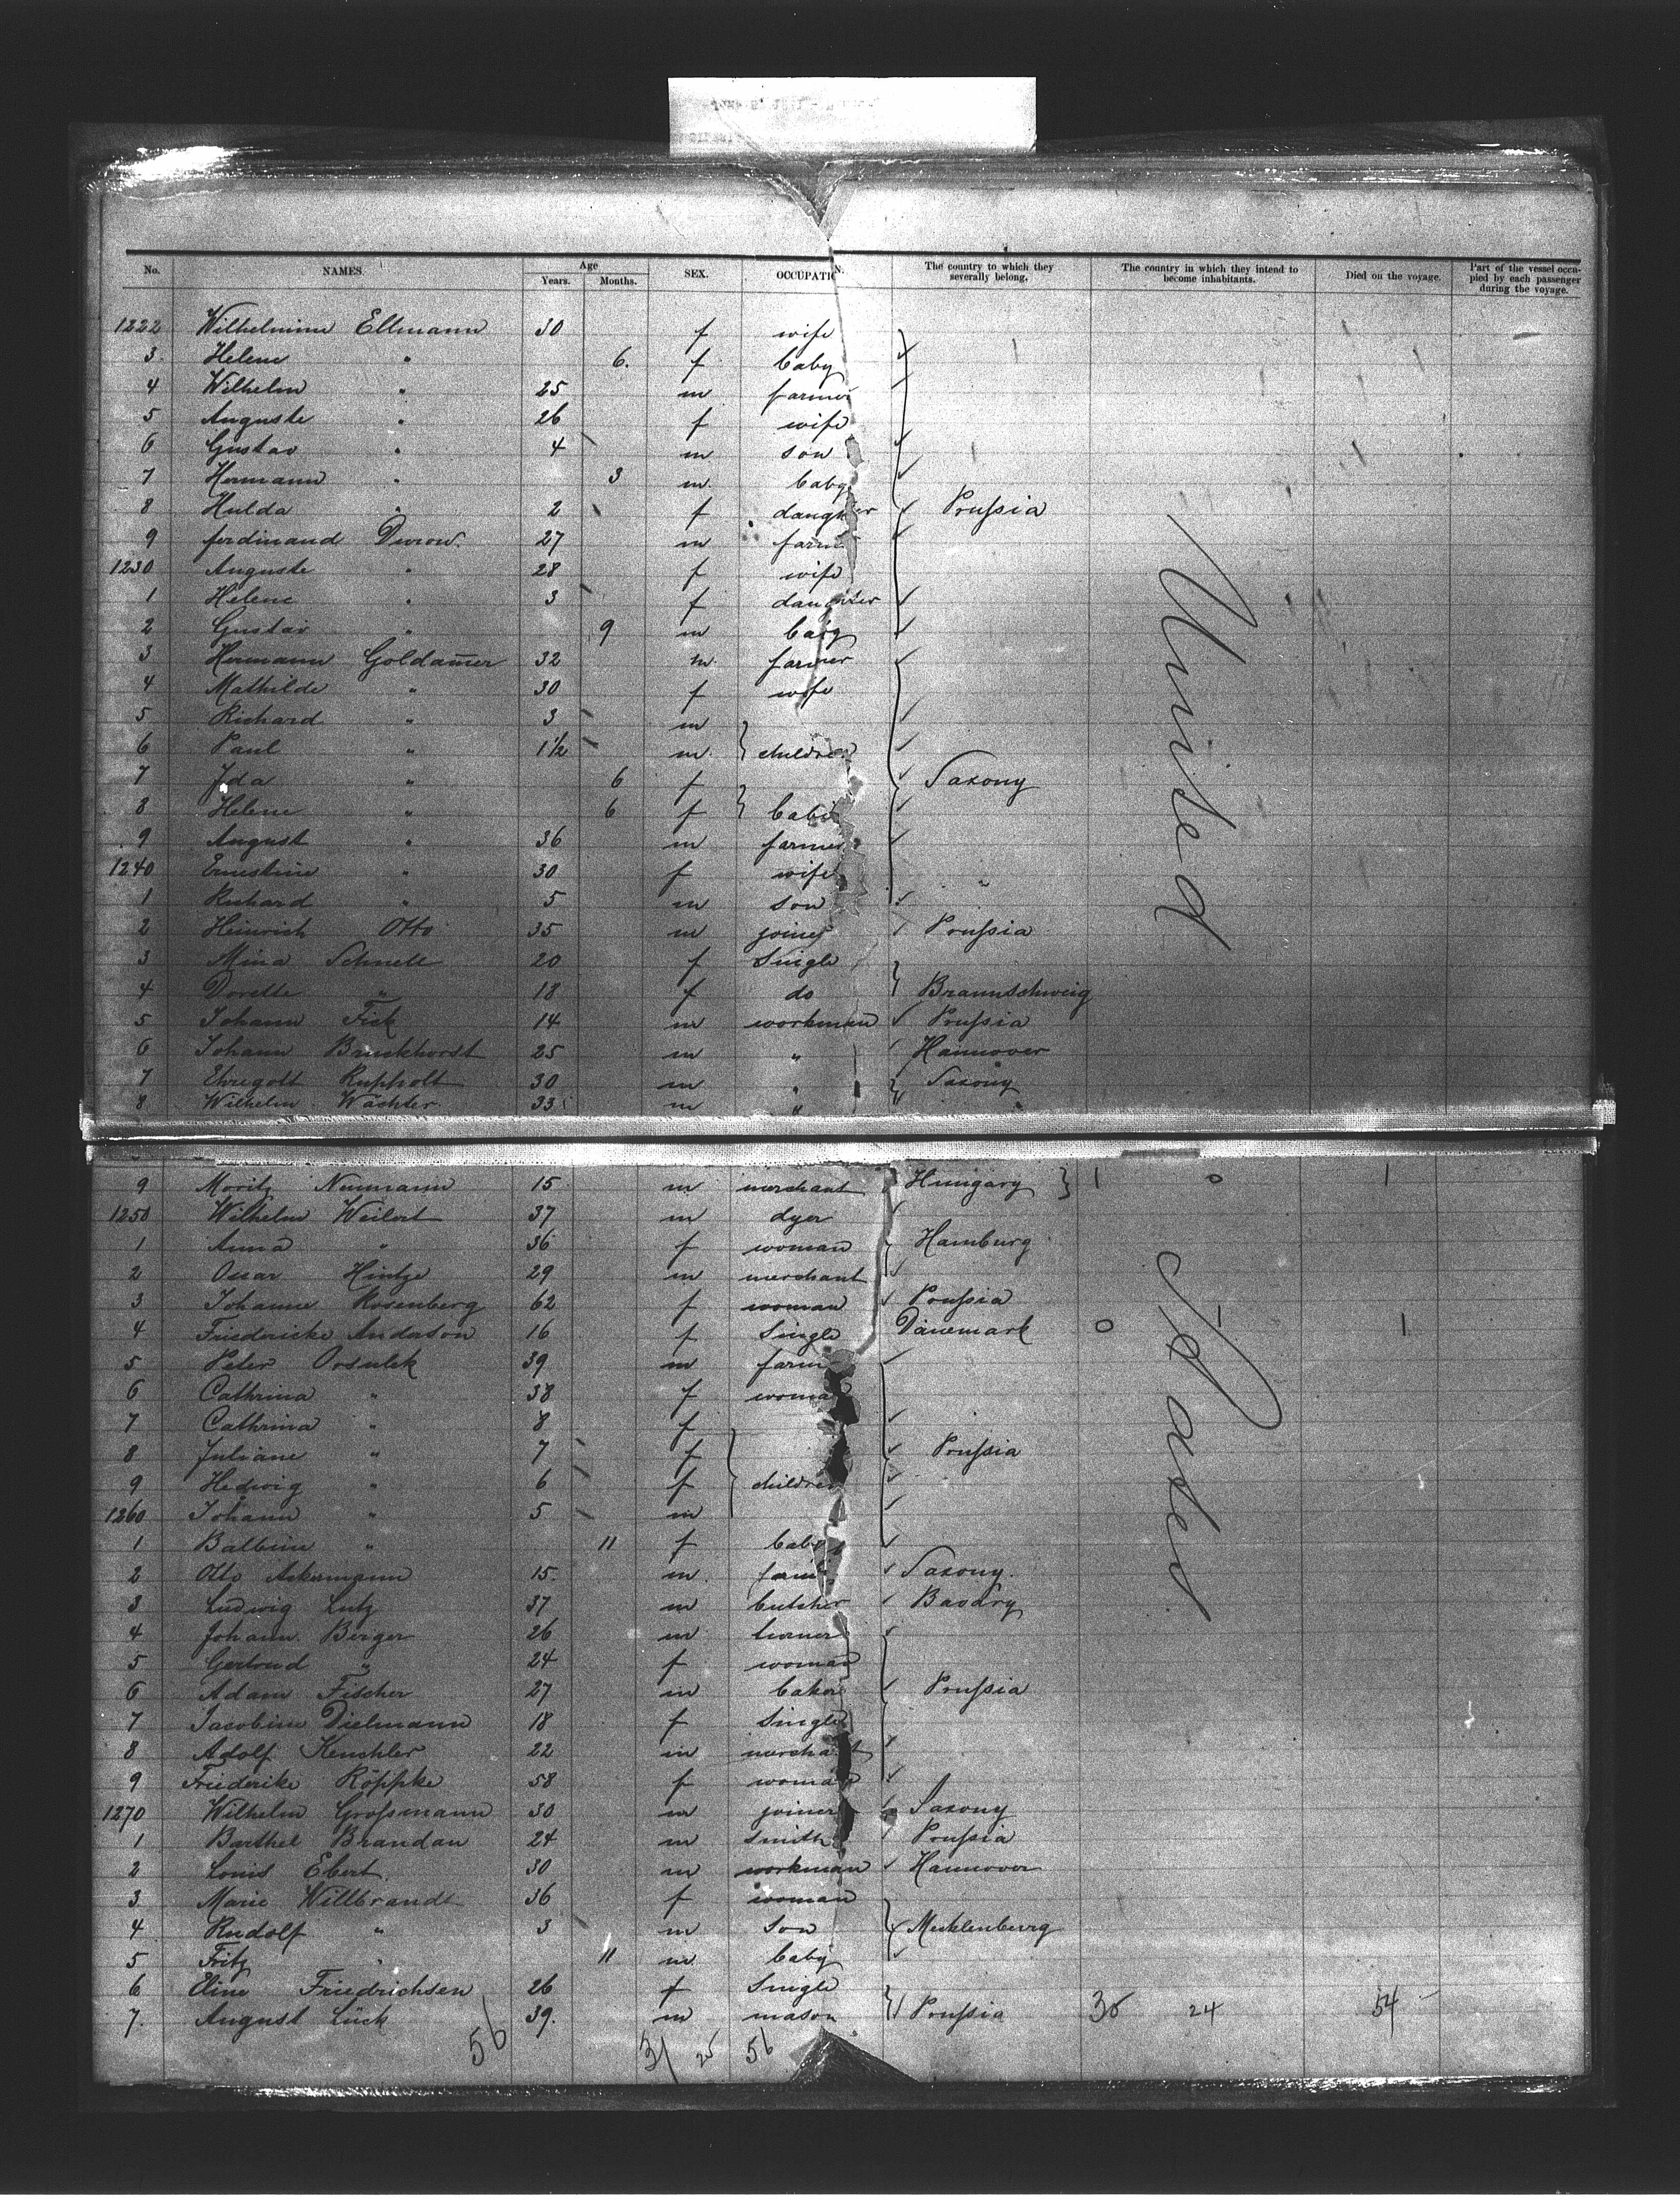 No. NAMES. Age Years. Months. SEX. OCCUPATION. The country to which they severally belong. The country in which they intend to become inhabitants. Died on the voyage. Part of the vessel occupied by each passenger during the voyage.
1222 Wilhelmine Ellmann 30 f wife
3 Helene " 6. f baby
4 Wilhelm " 25 m farmer
5 Auguste " 26 f wife
6 Gustav " 4 m son
7 Hermann " 3 m baby
8 Hulda " 2 f daughter Prußia
9 ferdinand Durow. 27 m farm
1230 Auguste " 28 f wife
1 Helene " 3 f daughter
2 Gustav " 9 m baby
3 Hermann Goldam̄er 32 m. farmer
4 Mathilde " 30 f wife
5 Richard " 3 m
6 Paul " 1½ m. children
7 Ida " 6 f Saxony
8 Helene " 6 f babi
9 August " 36 m farmer
1240 Ernestine " 30 f wife "
1 Richard " 5 m son
2 Heinrich Otto 35 m joiner Prußia
3 Mina Schnelle 20 f Single
4 Dorette " 18 f do Braunschweig
5 Johann Fick 14 m workman Prußia
6 Johann Brunkhorst 25 m " Hannover
7 Ehregott Rupholt 30 m " Saxony
8 Wilhelm Wächter 33 m " "
9 Moritz Neumann 15 m merchant Hungary 1 0 1
1250 Wilhelm Weilert 37 m dyer
1 Anna " 36 f woman Hamburg
2 Oscar Hintze 29 m merchant
3 Johanne Rosenberg 62 f woman Prußia
4 Friedericke Anderson 16 f Single Dänemark 0 1 1
5 Peter Orsulek 39 m farm
6 Cathrina " 38 f woma
7 Cathrina " 8 f
8 Juliane " 7 f Prußia
9 Hedwig " 6 f children
1260 Johann " 5 m
1 Balbine " 11 f baby
2 Otto Ackermann 15. m. farm Saxony.
3 Ludwig Lutz 37 m butcher Bavary
4 Johann Berger 26 m turner
5 Gertrud " 24 f woman
6 Adam Fischer 27 m baker Prußia
7 Jacobine Dielmann 18 f Single
8 Adolf Kenchler 22 m merchant
9 Friederike Röppke 58 f woman
1270 Wilhelm Großmann 30 m joiner Saxony
1 Barthel Brandau 24 m smith Prußia
2 Louis Ebert 30 m workman Hannover
3 Marie Willbrandt 36 f woman
4 Rudolf " 3 m son Mecklenburg
5 Fritz " 11 m baby
6 Eline Friedrichsen 26 f Single
7. August Lück 39. m mason Prußia 30 24 54
56 31 25 56
United
States